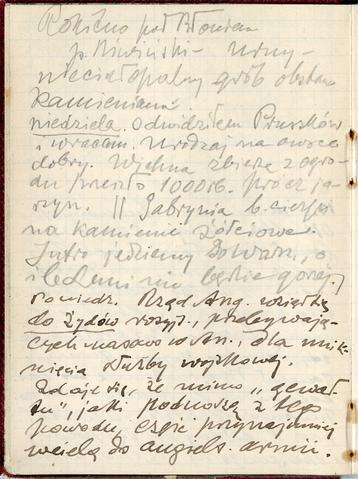 Rokitno pod Błoniem
p. Biwiński – urny –
nieciałopalny grób obstaw
kamieniami.
niedziela. Odwidziłem Pruszków
i wracam. Urodzaj na owoce
dobry. Wychna zbiera z ogro-
du przeszło 1000 rb. prócz ja-
rzyn. || Gabrynia b. cierpi
na kamienie żółciowe.
Jutro jedziemy do Warsz., o
ile Leni nie będzie gorzej.
poniedz. Rząd Ang. wziął się
do Żydów rosyj., przebywają-
cych masowo w An., dla unik-
nięcia służby wojskowej.
Zdaje się, że mimo „gewał-
tu", jaki podnoszą z tego
powodu, część przynajmniej
wcielą do angiels. armii.